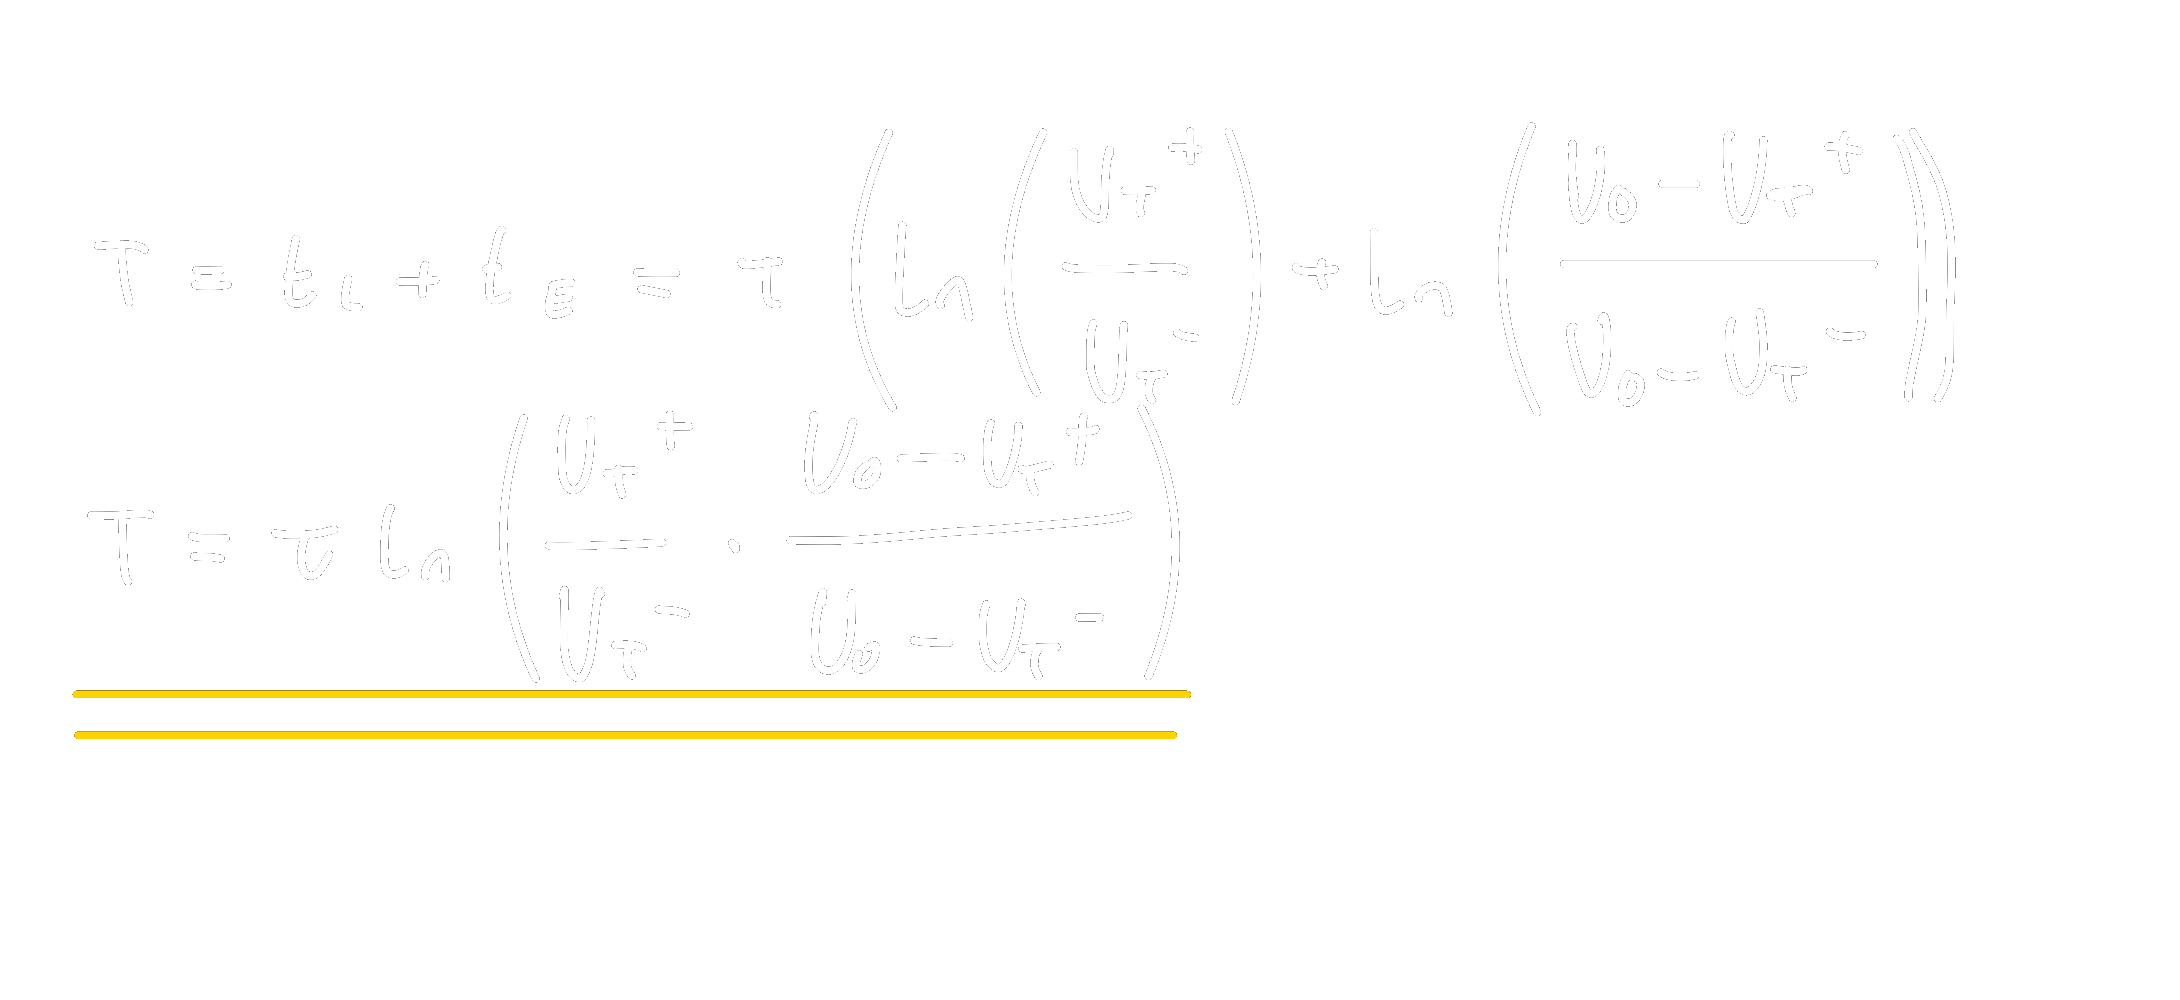 T = t_L + t_E = τ ( ln ( U_T^+ / U_T^- ) + ln ( (U_0 - U_T^+) / (U_0 - U_T^-) ) )
T = τ ln ( U_T^+ / U_T^- · (U_0 - U_T^+) / (U_0 - U_T^-) )